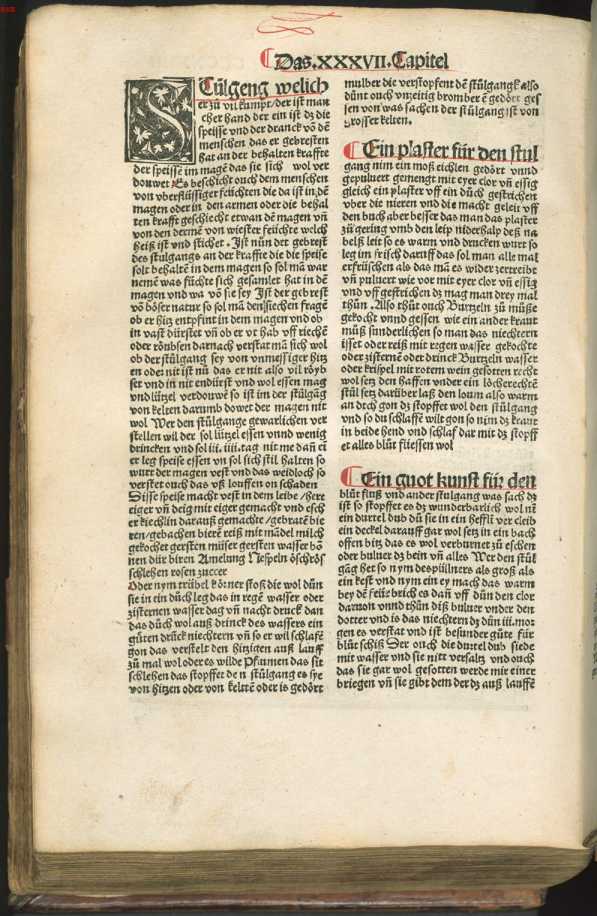 Das.XXXVII.Capitel
STůlgeng welich
er zů vil kumpt/der ist man
cher hand der ein ist dz die
speisse vnd der dranck võ dē
menschen das er gebresten
hat an der behalten kraffte
der speisse im magē das sie sich wol ver
douwet Es beschicht ouch dem menschen
von vberflüssiger feüchten die da ist in dē
magen oder in den armen oder die behal
ten krafft geschiecht etwan dē magen vñ
von den dermē von wiester feüchte welch
heiß ist vnd stichet. Ist nün det gebrest
des stulgangs an der kraffte die die speise
solt behaltē in dem magen so sol mā war
nemē was füchte sich gesamlet hat in dē
magen vnd wa võ sie sey Ist der gebrest
võ böser natur so sol man den siechen fragē
ob er hitz entpfint in dem magen vnd ob
in vast dürstet vñ ob er vt hab vff riechē
oder rönbsen darnach verstat mā sich wol
ob der stülgang sey von vnmessiger hitz
en oder nit ist nü das er nit also vil röyb
set vnd in nit endürst vnd wol essen mag
vnd lützel verdouwē so ist im der stülgāg
von kelten darumb dowet der magen nit
wol Wer den stülgange gewarlichen ver
stellen wil der sol lützel essen vnnd wenig
drincken vnd sol iii. iiii. tag nit me dañ ei
er leg speise essen vn sol sich stil halten so
wurt der magen vest vnd das weidloch so
verstet ouch das vß louffen on schaden
Disse speise macht vest in dem leibe/herte
eiger vñ deig mit eiger gemacht vnd esch
er kiechlin darauß gemachte/gebratē bie
ren/gebachen bierē reiß mit mādel milch
gekochet gersten müser gersten wasser bō
nen dür biren Amelung Nespeln öschrös
schlehen rosen zuccer
Oder nym trübel körner stoß die wol dün
sie in ein důch leg das in regē wasser oder
zisternen wasser dag vñ nacht druck dan
das důch wol auß drinck des wassers ein
gůten drück niechtern vñ so er wil schlafē
gon das verstelt den hitzigen auß lauff
zů mal wol oder es wilde Pfrumen das sit
schlehen das stopffet de n stülgang es sye
von hitzen oder von keltē oder is gedört
mulber die verstopfent dē stülgangk also
dünt ouch vnzeitig bromber ē gedört ges
sen von was sachen der stülgang ist von
grosser kelten.
Ein plaster für den stul
gang nim ein moß eichlen gedört vnnd
gepuluert gemengt mit eyer clor vñ essig
gleich ein plaster vff ein důch gestrichen
vber die nieren vnd die macht geleit vff
den buch aber besser das man das plaster
zů gering vmb den leip niderhalp deß na
belß leit so es warm vnd drucken wurt so
leg im frisch daruff das sol man alle mal
erfrüschen als das mā es wider zertreibt
vñ puluert wie vor mit eyer clor vñ essig
vnd vff gestrichen dz mag man drey mal
thün. Also thůt ouch Burtzeln zů můße
gekocht vnnd gessen wie ein ander kraut
můß sunderlichen so man das niechtern
isset oder reiß mit regen wasser gekochte
oder zisternē oder drinck Burtzeln wasser
oder krispel mit rotem wein gesotten recht
wol setz den haffen vnder ein löcherechtē
stül setz darüber laß den loum also warm
an dich gon dz stopffet wol den stülgang
vnd so du schlaffē wilt gon so nim dz kraut
in beide hend vnd schlaf dar mit dz stopff
et alles blůt fliessen wol
Ein guot kunst für den
blůt fluß vnd ander stulgang was sach dz
ist so stopffet es dz wunderbarlich wol nī
ein durtel dub dü sie in ein heffli ver cleib
ein deckel darauff gar wol setz in ein bach
offen biz das es wol verburnet zů eschen
oder buluer dz bein vñ alles Wer den stül
gāg het so nym des püllners als groß als
ein kest vnd nym ein ey mach das warm
bey dē feürbrich es dañ vff dün den clor
daruon vnnd thün diß buluer vnder den
dotter vnd is das niechtern dz dün iii.mor
gen es verstat vnd ist besunder güte für
blůt schiß Der ouch die durtel dub siede
mit wasser vnd sie nitt versaltz vnd ouch
das sie gar wol gesotten werde mit einer
briegen vñ sie gibt dem der dz auß lauffē